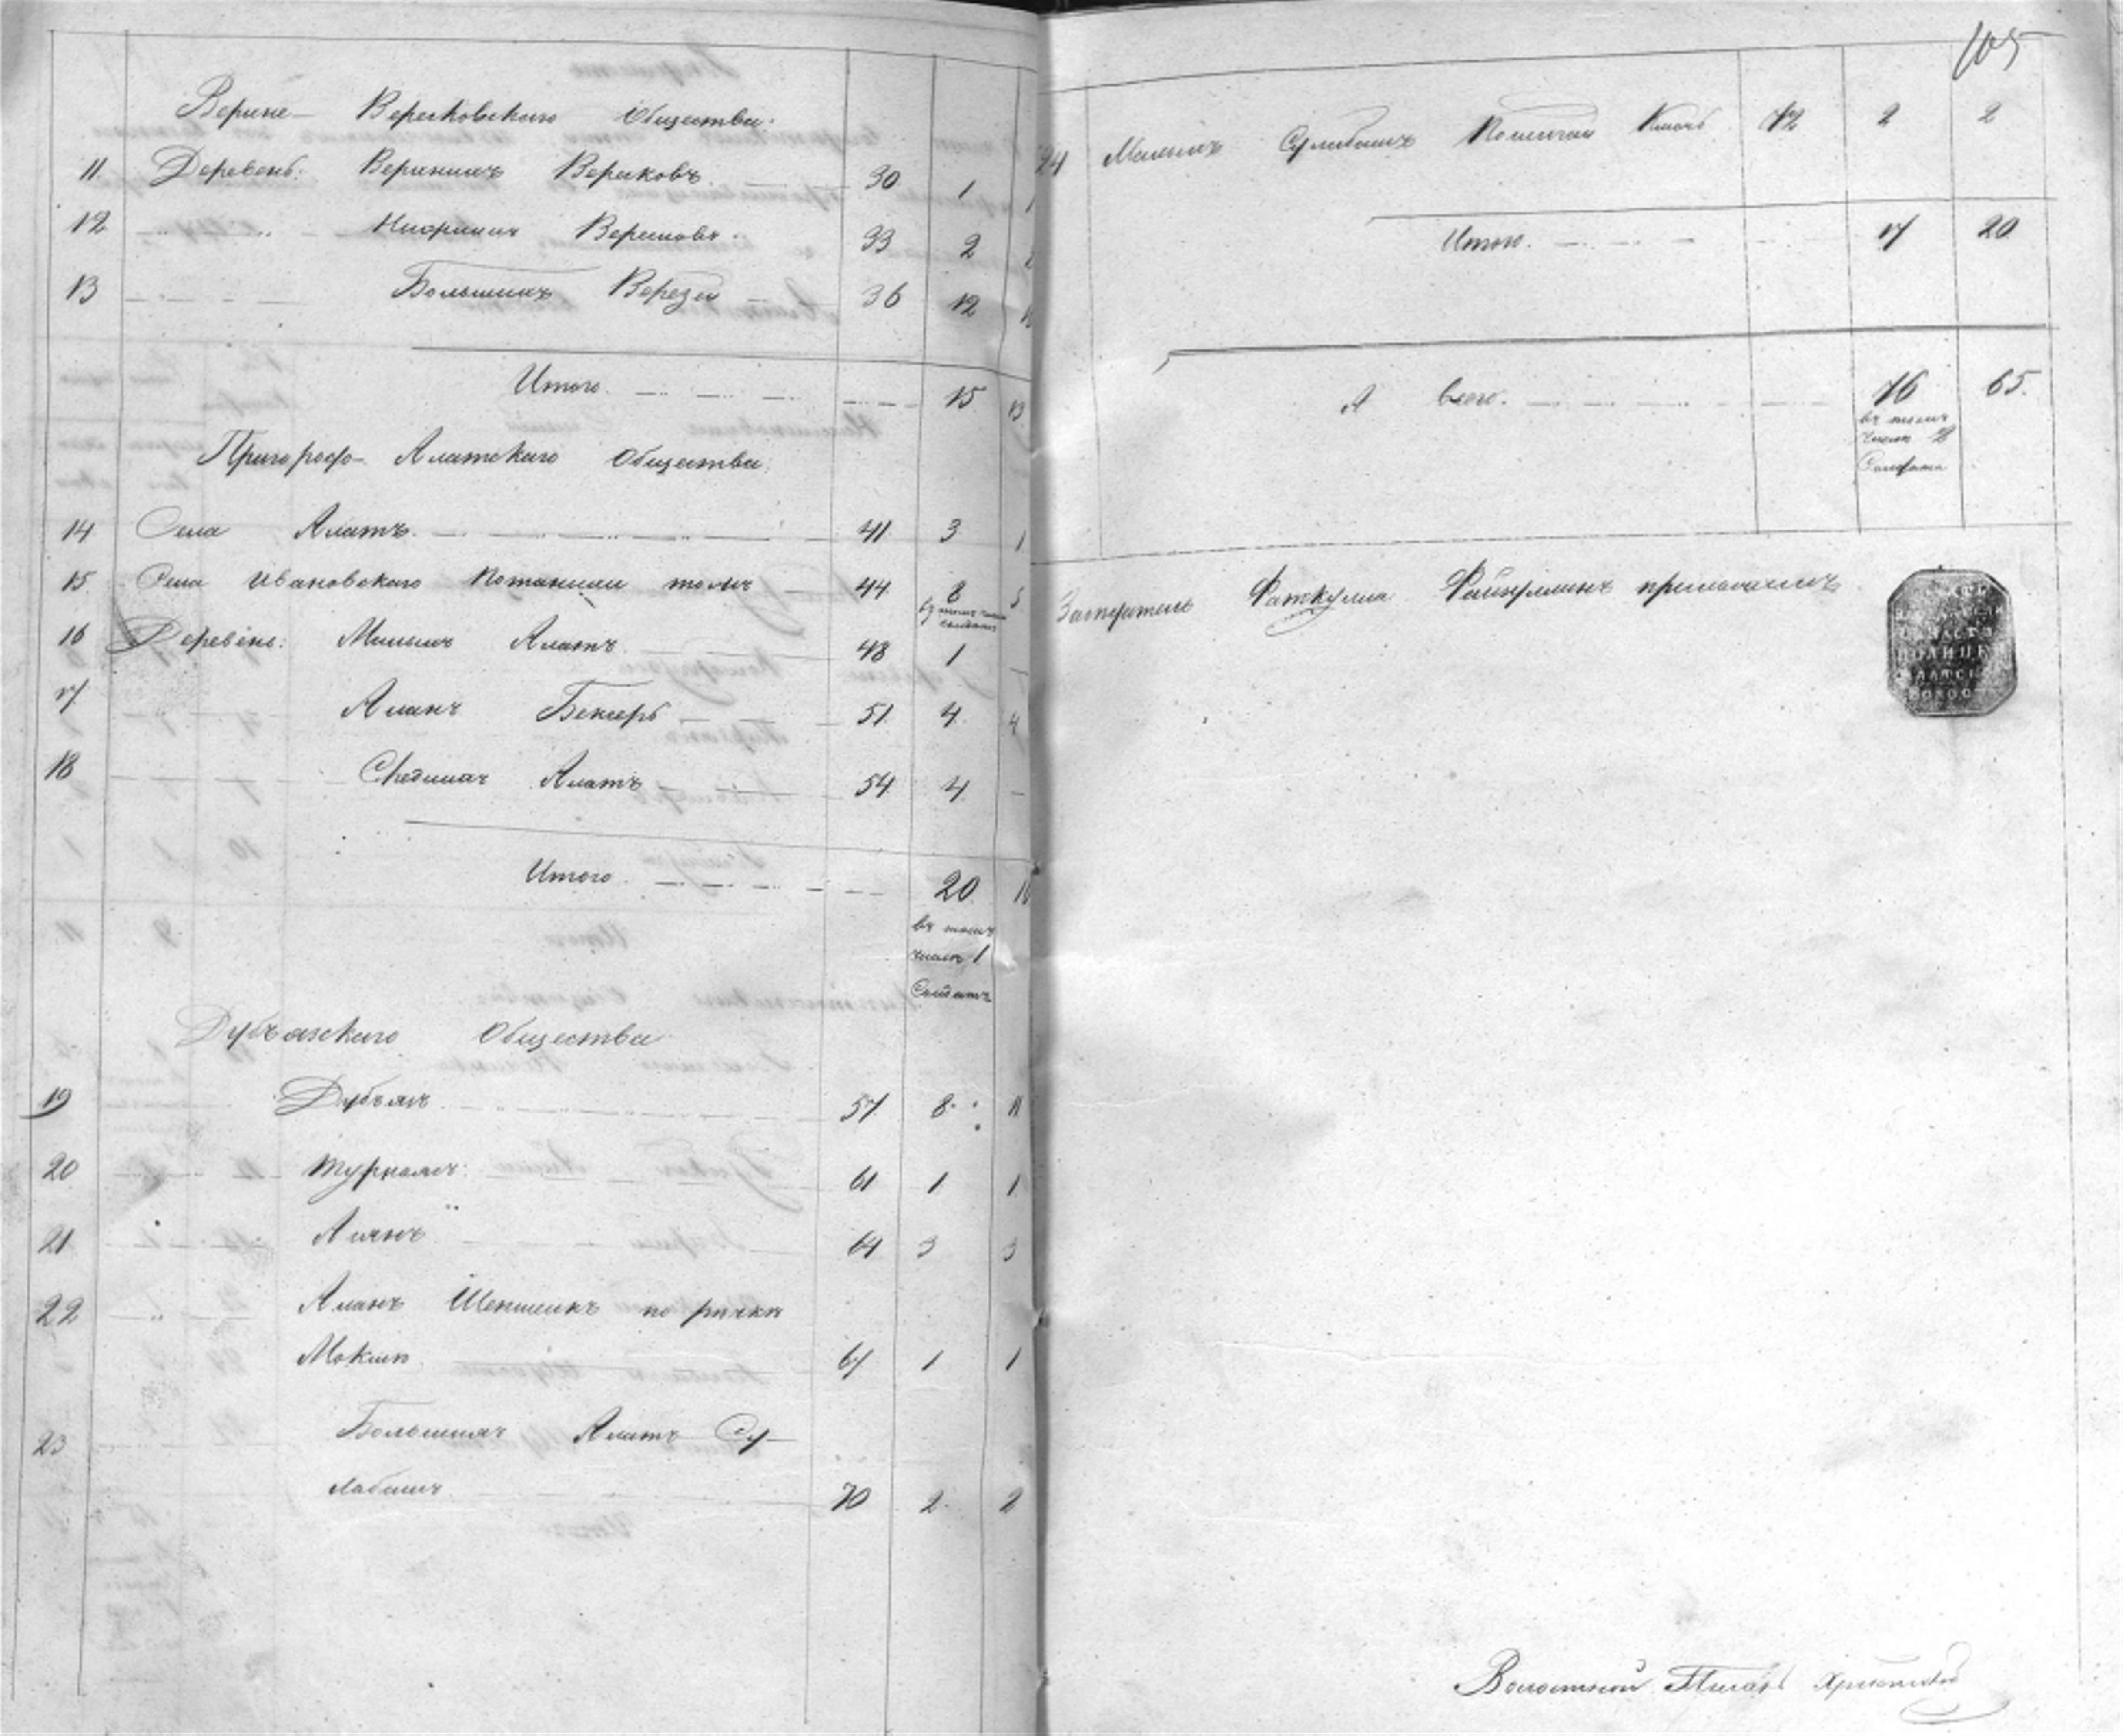 Верхне- Верезковскаго Общества:
11. Деревень: Верхнихъ Верезковъ 30 1 1
12 Нижнихъ Верезковъ 33 2 2
13 Большихъ Верези 36 12 1
Итого. 15 13
Пригородо- Алатскаго Общества:
14 Села Алатъ. 41 3 1
15. Села Ивановскаго Потанихи тожъ 44 8 5
въ томъ числѣ солдатъ
16 Деревень: Малыхъ Алатъ 48 1 —
17 Аланъ Бексеръ 51. 4. 4
18 Среднихъ Алатъ 54 4 —
Итого. 20. 10
въ томъ
числѣ 1
Солдатъ
Дубъязскаго Общества
19 Дубъязъ 57. 8. 11
20 Турнаязъ. 61 1 1
21 Алянъ 64 3 3
22 Аланъ по рѣчкѣ
67 1 1
23 Большихъ Алатъ Су-
лабашъ 70 2. 2
105
24 Малыхъ Сулабашъ Ключь 72 2 2
Итого. 17 20.
А всего. 76 65.
въ томъ
числѣ 2
Солдата
Засѣдатель Фаткулла Файзуллинъ приложилъ
Волостной Писарь